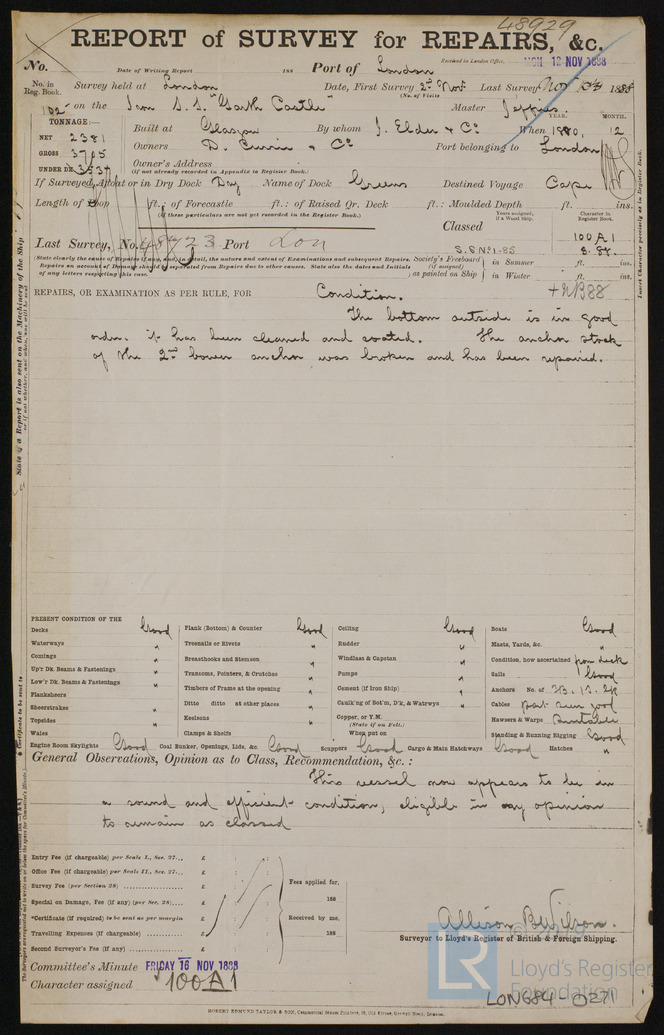 48929
REPORT of SURVEY for REPAIRS, &c.
No. Date of Writing Report 188 Port of London Received in London Office, MON 12 NOV 1888
No. in Reg. Book. Survey held at London Date, First Survey 2nd Novr Last Survey Nov 1888
(No. of Visits
102 on the Iron S.S. "Garth Castle" Master Jeffries
TONNAGE:— YEAR. MONTH.
NET 2381 Built at Glasgow By whom J. Elder & Co When 1880, 12
GROSS 3705 Owners D. Currie & Co Port belonging to London
UNDER DK. 3537 Owner's Address
(If not already recorded in Appendix to Register Book.)
If Surveyed Afloat or in Dry Dock Dry Name of Dock Greens Destined Voyage Cape
Length of Poop ft.: of Forecastle ft.: of Raised Qr. Deck ft.: Moulded Depth ft. ins.
(If these particulars are not yet recorded in the Register Book.)
Years assigned, if a Wood Ship. Character in Register Book.
Classed 100A1
Last Survey, No. 48723 Port Lon
S.S. No 1-85 8.88
(State clearly the cause of Repairs if any, and, in detail, the nature and extent of Examinations and subsequent Repairs. Repairs on account of Damage should be separated from Repairs due to other causes. State also the dates and Initials of any letters respecting this case.)
Society's Freeboard (if assigned) as painted on Ship in Summer ft. ins.
in Winter ft. ins.
REPAIRS, OR EXAMINATION AS PER RULE, FOR Condition. +NB88
The bottom outside is in good
order. it has been cleaned and coated. The anchor stock
of the 2nd bower anchor was broken and has been repaired.
PRESENT CONDITION OF THE
Decks Good
Waterways "
Comings "
Up'r Dk. Beams & Fastenings "
Low'r Dk. Beams & Fastenings "
Planksheers
Sheerstrakes "
Topsides "
Wales
Engine Room Skylights Good
Plank (Bottom) & Counter Good
Treenails or Rivets "
Breasthooks and Stemson "
Transoms, Pointers, & Crutches "
Timbers of Frame at the opening "
Ditto ditto at other places "
Keelsons "
Clamps & Shelfs
Coal Bunker, Openings, Lids, &c. Good
Ceiling Good
Rudder "
Windlass & Capstan "
Pumps "
Cement (if Iron Ship) "
Caulk'ng of Bot'm, D'k, & Watrwys "
Copper, or Y.M.
(State if on Felt.)
When put on
Scuppers Good Cargo & Main Hatchways Good
Boats Good
Masts, Yards, &c. "
Condition, how ascertained from deck
Sails Good
Anchors No. of 3B. 1S. 2K
Cables part seen good
Hawsers & Warps Suitable
Standing & Running Rigging Good
Hatches "
General Observations, Opinion as to Class, Recommendation, &c.:
This vessel now appears to be in
a sound and efficient condition, eligible in my opinion
to remain as classed
Entry Fee (if chargeable) per Scale I., Sec. 27... £ : :
Office Fee (if chargeable) per Scale II., Sec. 27... £ : :
Survey Fee (per Section 28) £ : :
Special on Damage, Fee (if any) (per Sec. 28)... £ : :
*Certificate (if required) to be sent as per margin
Travelling Expenses (if chargeable) £ : :
Second Surveyor's Fee (if any) £ : :
Fees applied for, 188
Received by me, 188
Allison B. Wilson.
Surveyor to Lloyd's Register of British & Foreign Shipping.
Committee's Minute FRIDAY 16 NOV 1888
Character assigned 100A1
LR
© 2019
Lloyd's Register
Foundation
LON684-0271
ROBERT EDMUND TAYLOR & SON, Commercial Steam Printers, 19, Old Street, Goswell Road, London.
Insert Character precisely as in Register Book.
State if a Report is also sent on the Machinery of the Ship
* Certificate to be sent to